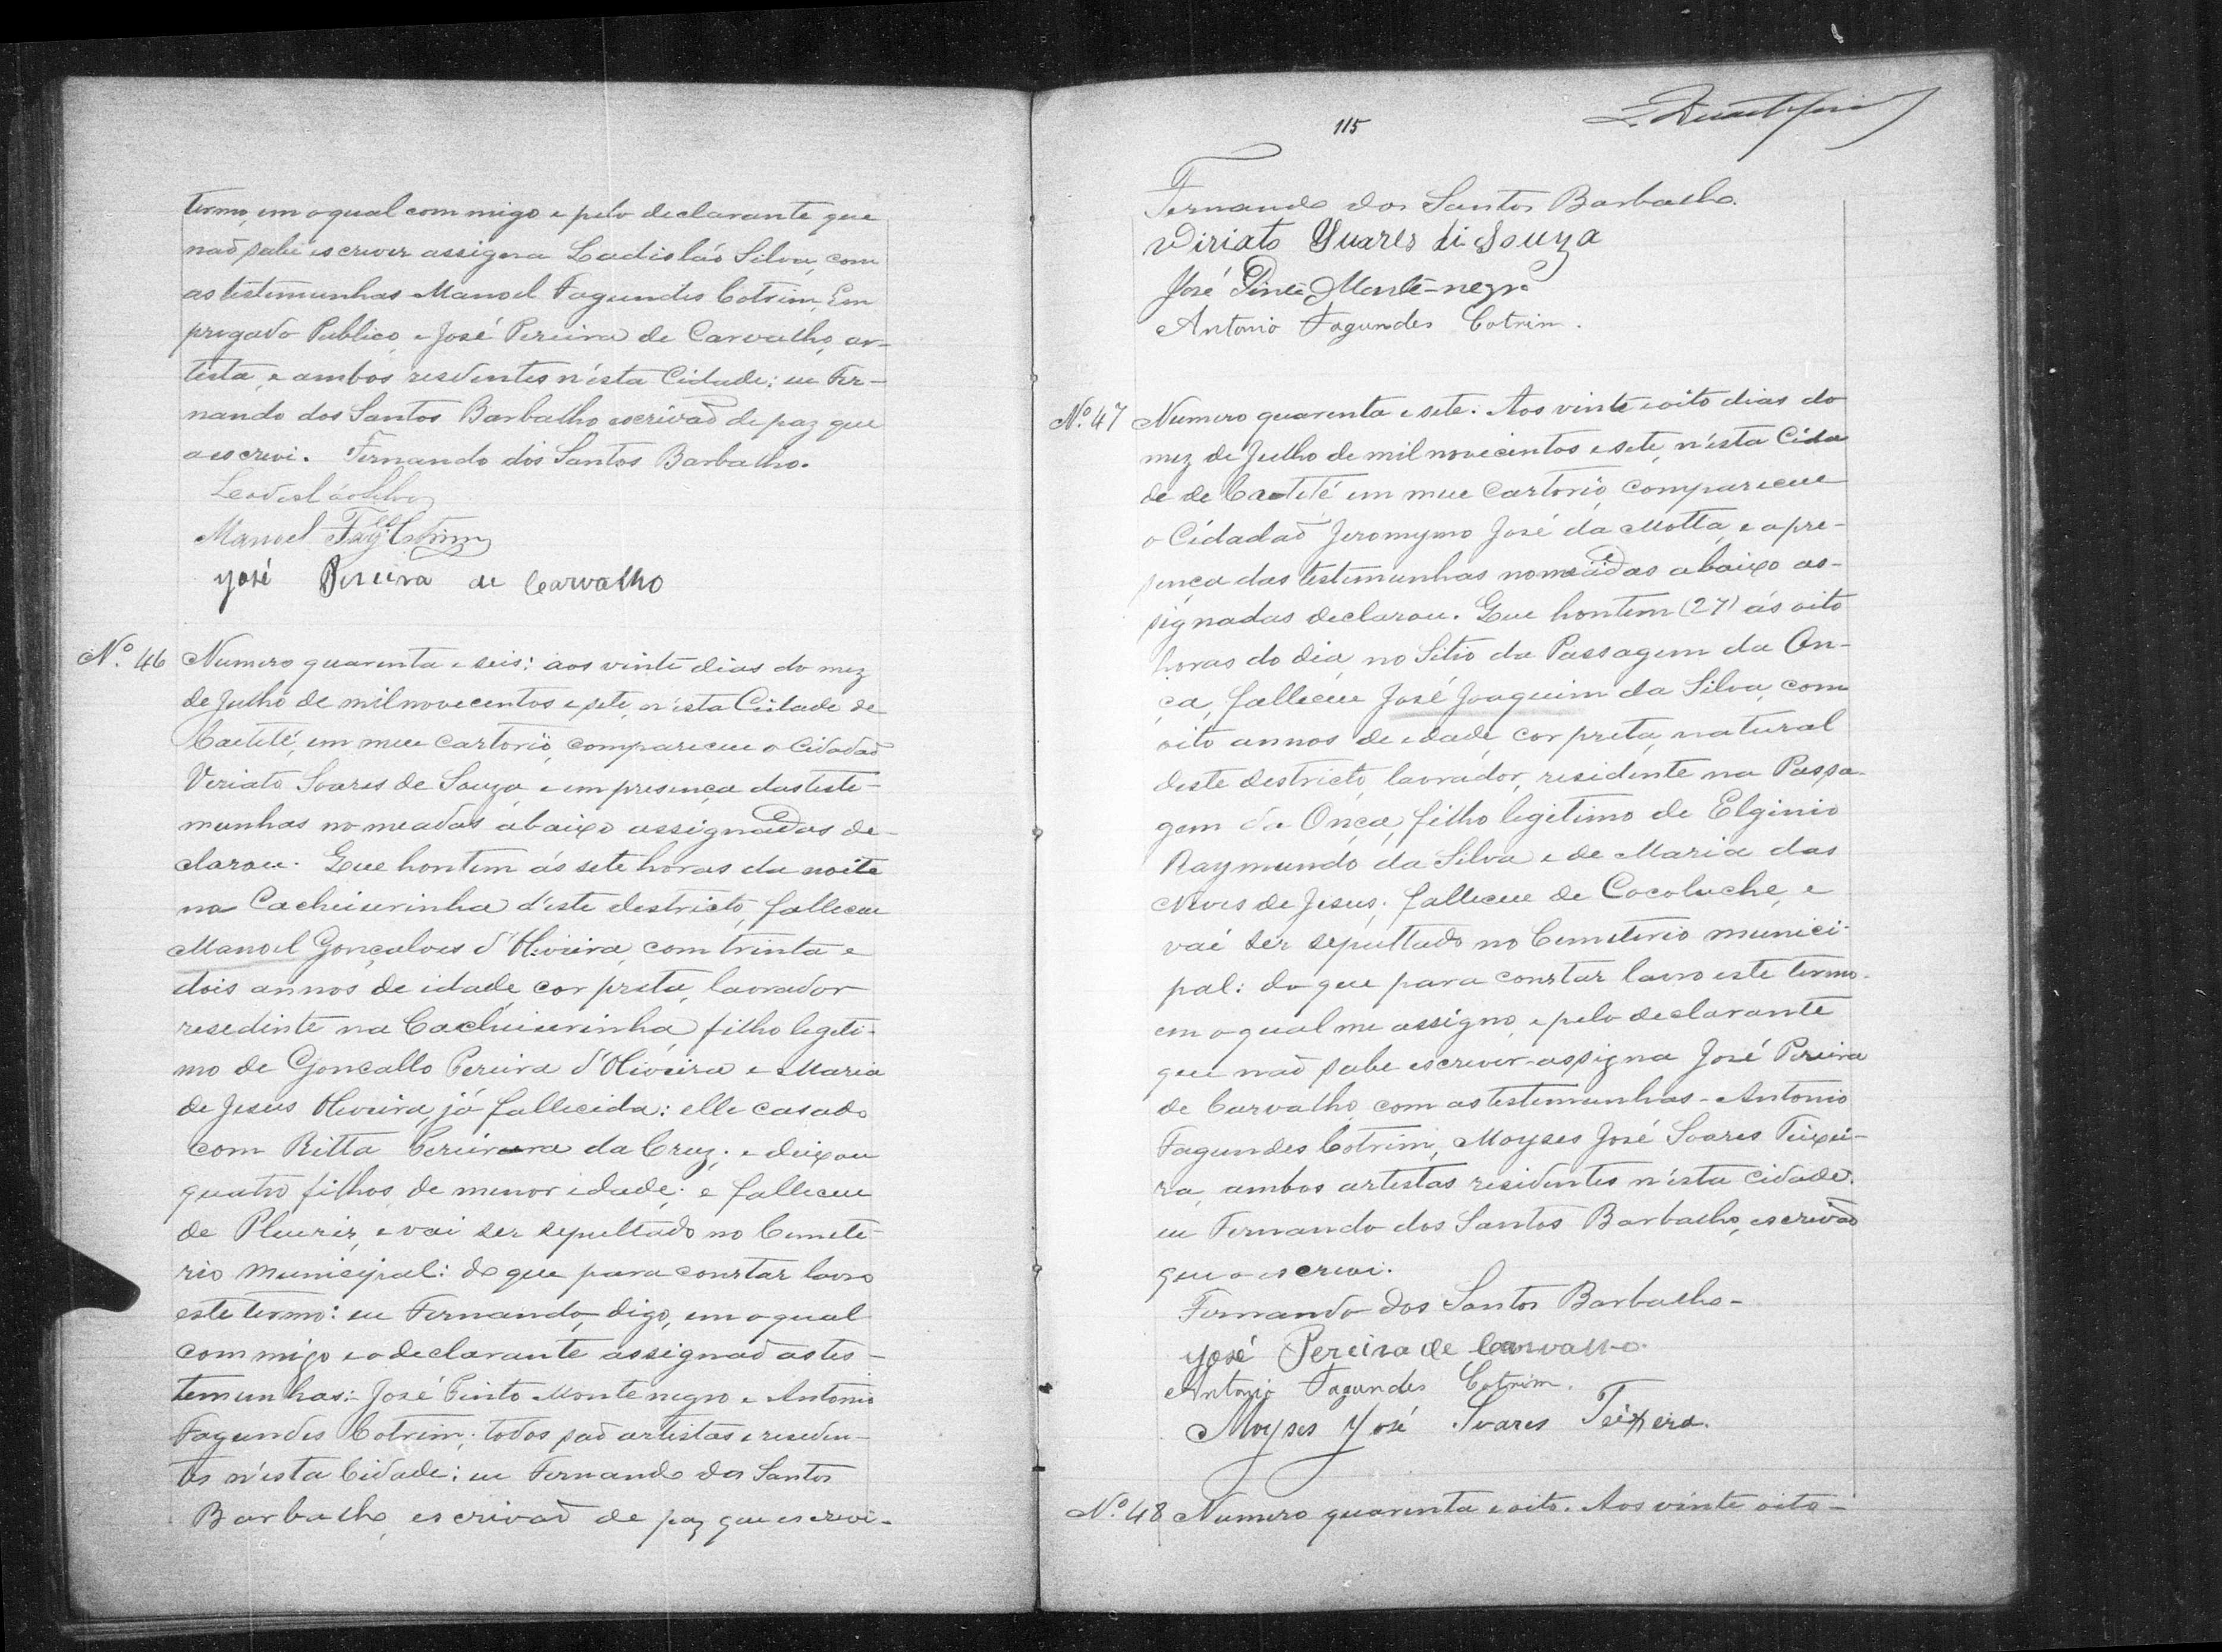 termo, em o qual com migo e pelo declarante que
naõ sabe escrever assigna Ladisláo Silva, com
as testemunhas Manoel Fagundes Cotrim, Em
pregado Publico, e José Pereira de Carvalho, ar-
tista, e ambos residentes n'ésta Cidade; eu Fer-
nando dos Santos Barbalho escrivaõ de paz que
a escrevi. Fernando dos Santos Barbalho.
Ladisláo Silva
Manoel Fag.es Cotrim
José Pereira de Carvalho
Nº. 46 Numero quarenta e seis: aos vinte dias do mez
de Julho de mil novecentos e sete, n'ésta Cidade de
Caetité, em meu Cartorio, compareceu o Cidadaõ
Veriato Soares de Souza, e em presença das teste-
munhas nomeadas abaixo assignadas de-
clarou. Que hontem ás sete horas da noite
na Cacheiurinha d'este destricto, falleceu
Manoel Gonçalves d'Oliveira, com trinta e
dois annos de idade, cor preta, lavrador
resedinte na Cacheiurinha, filho legeti-
mo de Goncallo Pereira d'Oliveira e Maria
de Jesus Oliveira, já fallecida: elle casado
com Ritta Pereirara da Cruz; e deixou
quatro filhos, de menor idade; e falleceu
de Pleuriz, e vai ser sepultado no Cemete-
rio Municipal: do que para constar lavro
este termo: eu Fernando, digo, em o qual
com migo e o declarante assignaõ as tes-
temunhas:- José Pinto Montenegro e Antonio
Fagundes Cotrim; todos saõ artistas e residen-
tes n'esta Cidade; eu Fernando dos Santos
Barbalho, escrivaõ de paz que escrevi.
115
Fernando dos Santos Barbalho.
Viriato Suares di Souza
José Pinto Monte-negro
Antonio Fagundes Cotrim.
Nº. 47 Numero quarenta e sete: Aos vinte e oito dias do
mez de Julho de mil novecentos e sete, n'ésta Cida
de de Caetité em meu Cartorio, compareceu
o Cidadaõ Jeronymo José da Motta, e a pre-
sença das testemunhas nomeadas abaixo as-
signadas declarou. Que hontem (27) ás oito
horas do dia no Sitio da Passagem da On-
ça, falleceu José Joaquim da Silva, com
oito annos de edade, cor preta, natural
deste destricto, lavrador, residente na Passa-
gem da Onça, filho legitimo de Elginio
Raymundo da Silva e de Maria das
Neves de Jesus; falleceu de Cocoluche, e
vai ser sepultado no Cemeterio munici-
pal: do que para constar lavro este termo
em o qual me assigno, e pelo declarante
que naõ sabe escrever-assigna José Pereira
de Carvalho, com as testemunhas-Antonio
Fagundes Cotrim, Moyses José Soares Teixei-
ra, ambos artistas residentes n'ésta cidade.
eu Fernando dos Santos Barbalho, escrivaõ
que o escrevi.
Fernando dos Santos Barbalho-
José Pereira de Carvalho.
Antonio Fagundes Cotrim.
Moyses José Suares Teixera.
Nº. 48 Numero quarenta e oito. Aos vinte oito-